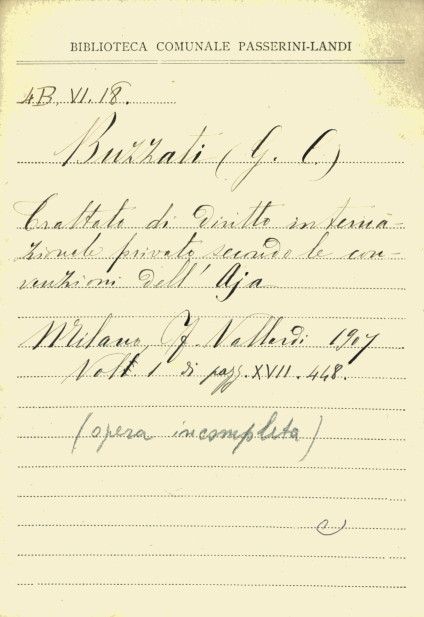 BIBLIOTECA COMUNALE PASSERINI-LANDI
4B. VI. 18.
Buzzati (G. C.)
Trattato di diritto interna-
zionale privato secondo le con-
venzioni dell' Aja
Milano, F. Vallardi 1907
Vol. 1 di pagg. XVII. 448.
(opera incompleta)